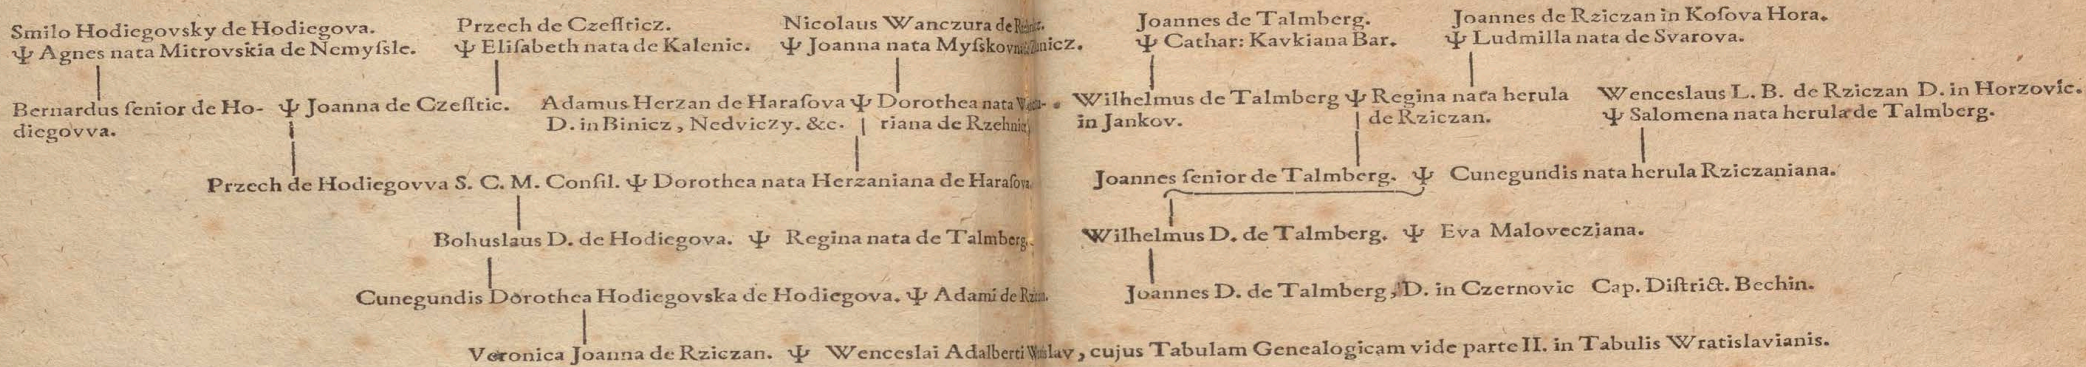 Smilo Hodiegovsky de Hodiegova.
Ψ Agnes nata Mitrovskia de Nemyſsle.
Przech de Czeſſticz.
Ψ Eliſabeth nata de Kalenic.
Nicolaus Wanczura de
Ψ Joanna nata Myſskov
Joannes de Talmberg.
Ψ Cathar: Kavkiana Bar.
Joannes de Rziczan in Koſova Hora.
Ψ Ludmilla nata de Svarova.
Bernardus ſenior de Ho- Ψ Joanna de Czeſſtic.
diegovva.
Adamus Herzan de Haraſova Ψ Dorothea nata
D. in Binicz, Nedviczy. &c. riana de Rzehnicz
Wilhelmus de Talmberg Ψ Regina nata herula
in Jankov. de Rziczan.
Wenceslaus L. B. de Rziczan D. in Horzovic.
Ψ Salomena nata herula de Talmberg.
Przech de Hodiegovva S. C. M. Conſil. Ψ Dorothea nata Herzaniana de Haraſova.
Joannes ſenior de Talmberg. Ψ Cunegundis nata herula Rziczaniana.
Bohuslaus D. de Hodiegova. Ψ Regina nata de Talmberg.
Wilhelmus D. de Talmberg. Ψ Eva Malovecziana.
Cunegundis Dorothea Hodiegovska de Hodiegova. Ψ Adami de Rziczan.
Joannes D. de Talmberg, D. in Czernovic Cap. Diſtrict. Bechin.
Veronica Joanna de Rziczan. Ψ Wenceslai Adalberti Wratislav, cujus Tabulam Genealogicam vide parte II. in Tabulis Wratislavianis.